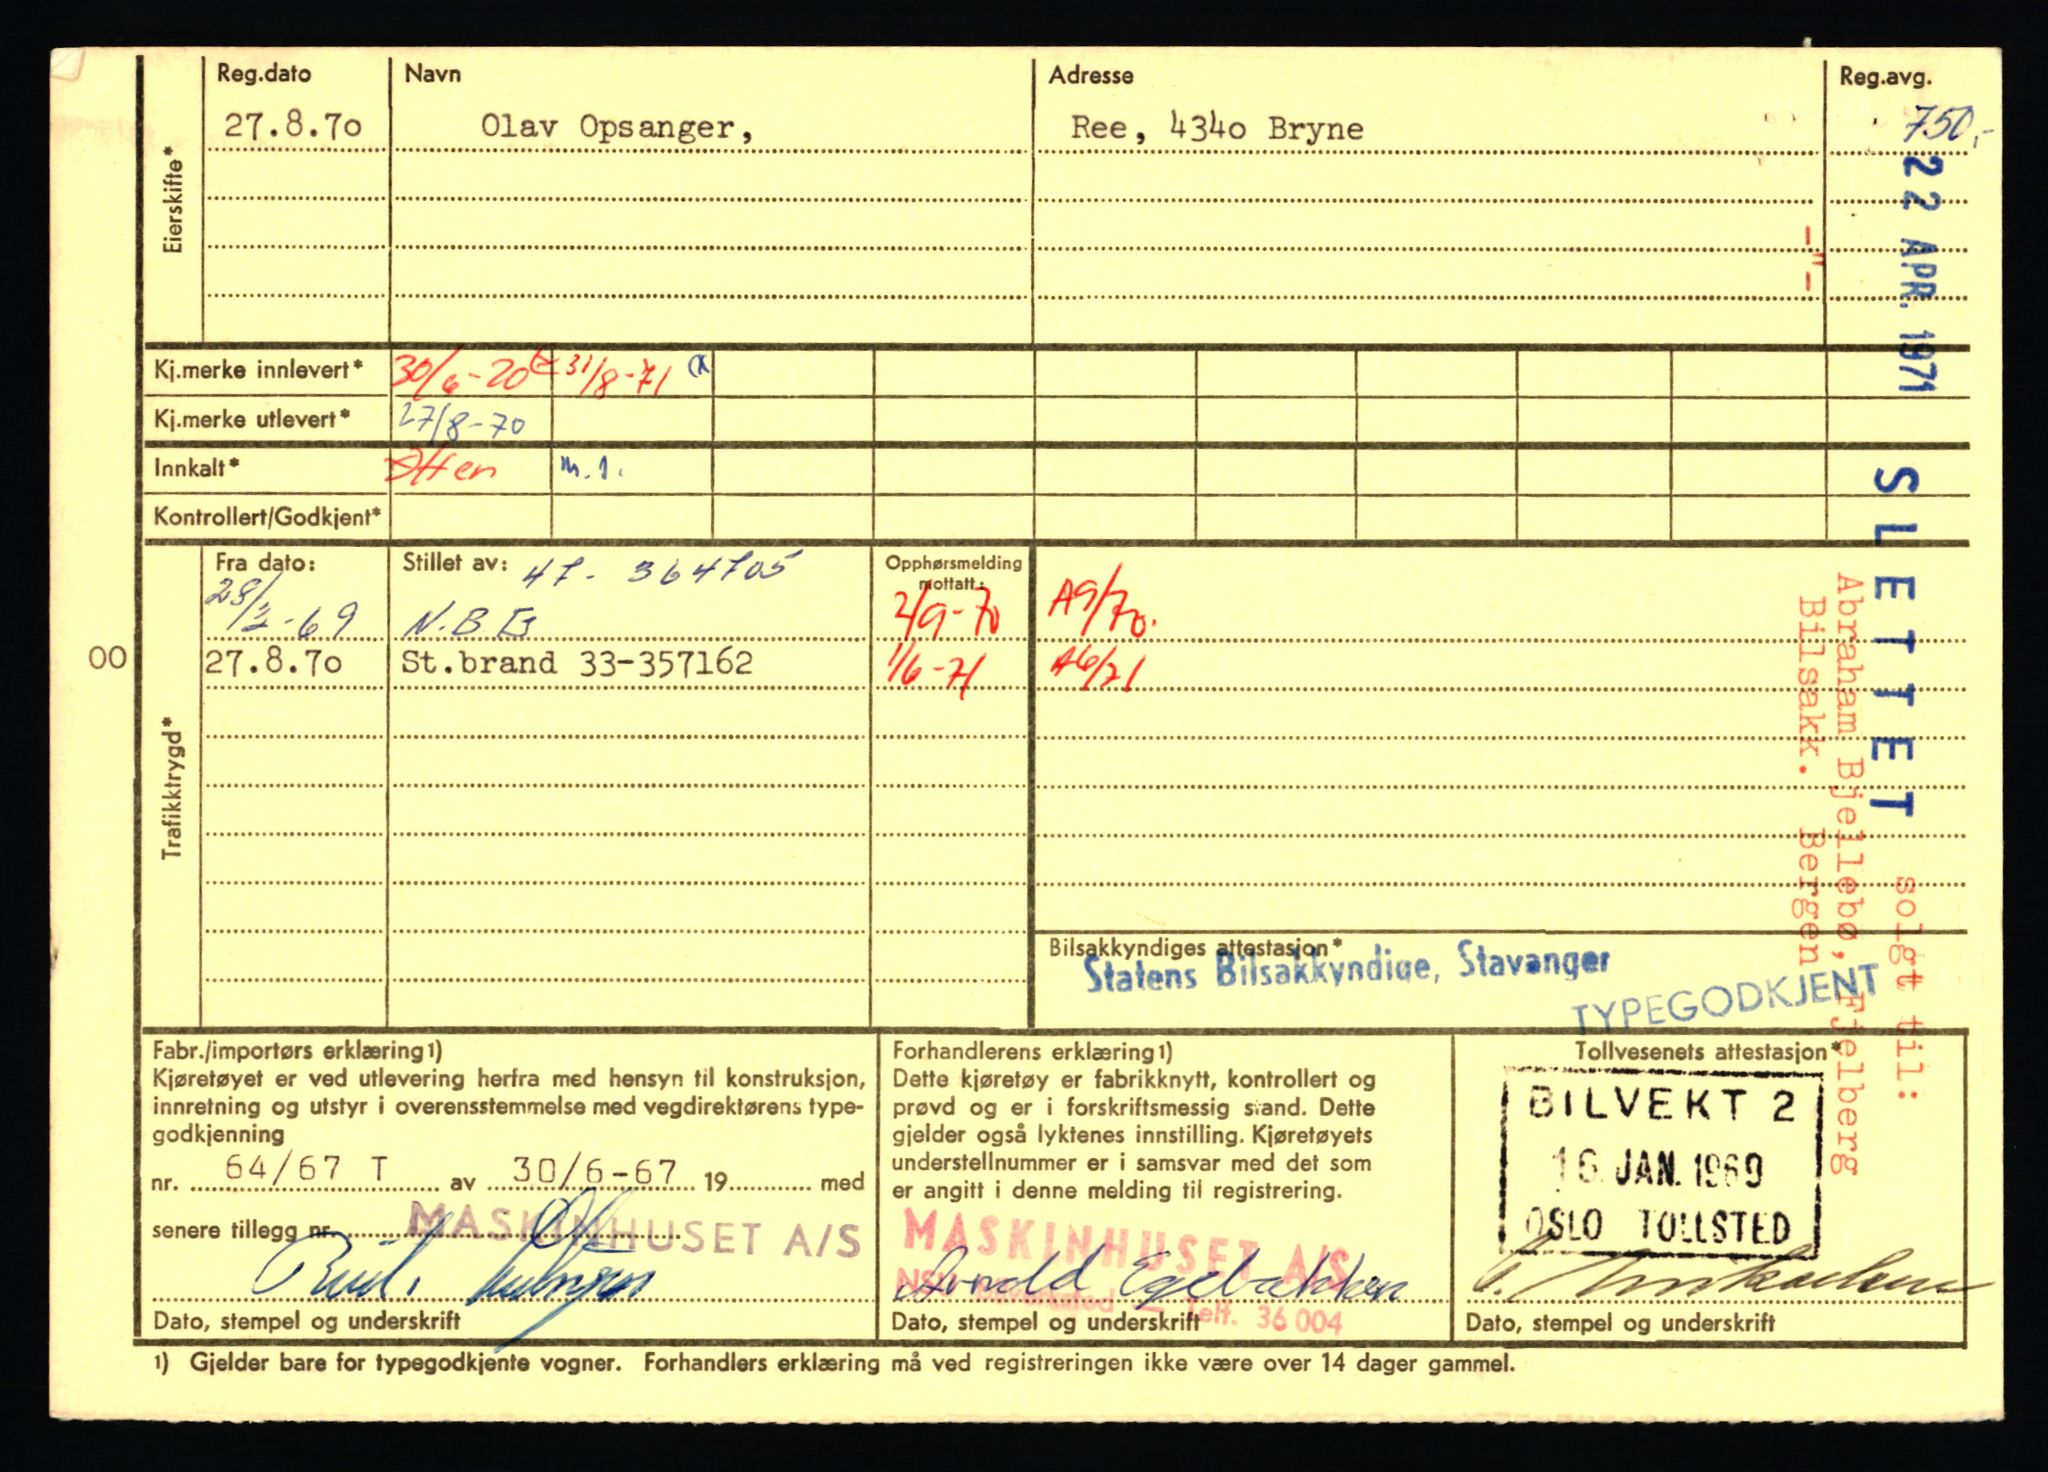 Reg.dato Navn Adresse Reg.avg.
Eierskifte*
27.8.7o Olav Opsanger, Ree, 434o Bryne 750,-
22 APR. 1971
-"-
Kj.merke innlevert* 30/6-70 31/8-71
Kj.merke utlevert* 27/8-70
Innkalt* m.1.
Kontrollert/Godkjent*
SLETTET
solgt til:
Abraham Bjellebø, Fjelberg
Bilsakk. Bergen
Trafikktrygd*
Fra dato: Stillet av: 47- 364705 Opphørsmelding mottatt:
28/2-69 N.B.B 2/9-70 A9/70.
00
27.8.7o St.brand 33-357162 1/6-71 A6/71
Bilsakkyndiges attestasjon*
Statens Bilsakkyndige, Stavanger
TYPEGODKJENT
Fabr./importørs erklæring1)
Kjøretøyet er ved utlevering herfra med hensyn til konstruksjon,
innretning og utstyr i overensstemmelse med vegdirektørens type-
godkjenning
nr. 64/67 T av 30/6-67 19 med
senere tillegg nr.
MASKINHUSET A/S
Dato, stempel og underskrift
Forhandlerens erklæring1)
Dette kjøretøy er fabrikknytt, kontrollert og
prøvd og er i forskriftsmessig stand. Dette
gjelder også lyktenes innstilling. Kjøretøyets
understellnummer er i samsvar med det som
er angitt i denne melding til registrering.
MASKINHUSET A/S
Arnold Egebakken
Telf. 36 004
Dato, stempel og underskrift
Tollvesenets attestasjon*
BILVEKT 2
16 JAN. 1969
OSLO TOLLSTED
Dato, stempel og underskrift
1) Gjelder bare for typegodkjente vogner. Forhandlers erklæring må ved registreringen ikke være over 14 dager gammel.